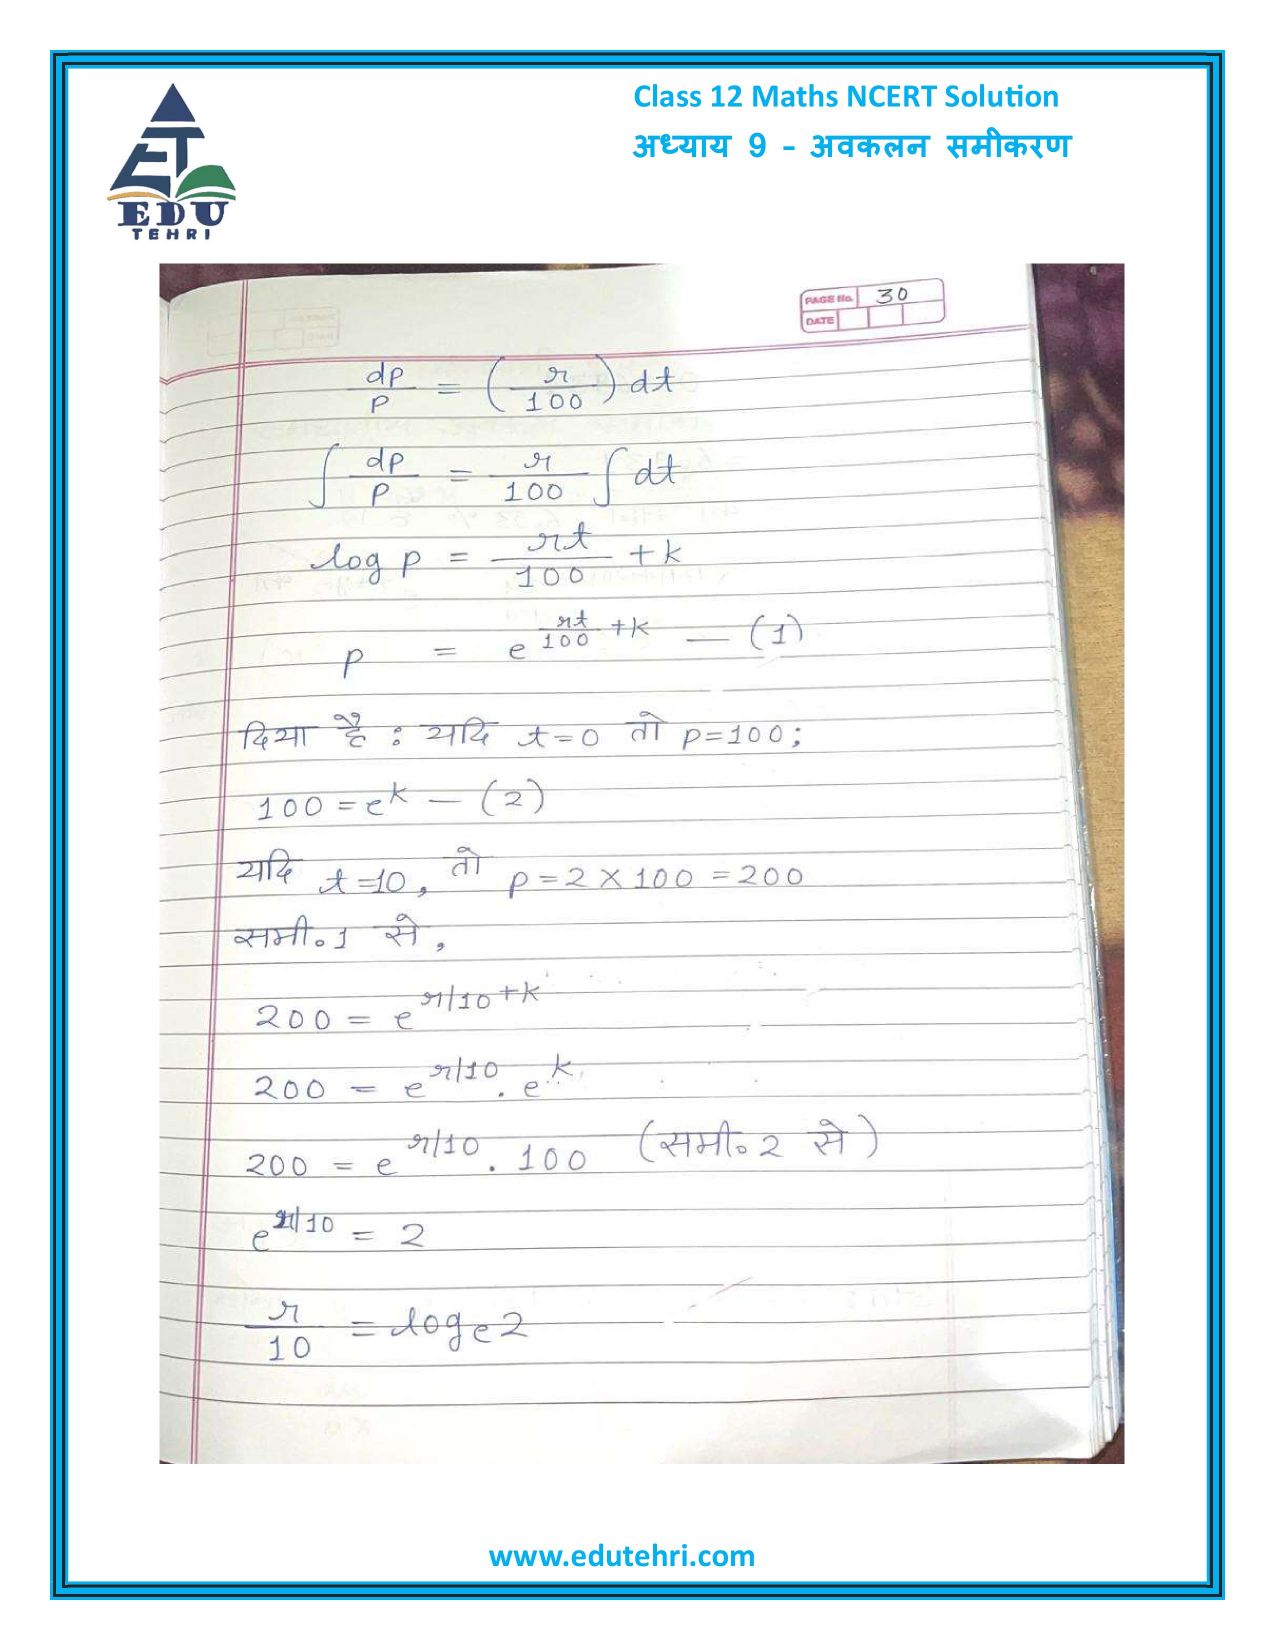 Class 12 Maths NCERT Solution
अध्याय 9 - अवकलन समीकरण
EDU
TEHRI
PAGE No. 30
DATE
dp/p = (r/100) dt
∫ dp/p = r/100 ∫ dt
log p = rt/100 + k
p = e^(rt/100 + k) — (1)
दिया है : यदि t=0 तो p=100;
100 = e^k — (2)
यदि t=10, तो p = 2 × 100 = 200
समी. 1 से,
200 = e^(r/10 + k)
200 = e^(r/10) . e^k
200 = e^(r/10) . 100 (समी. 2 से)
e^(r/10) = 2
r/10 = log_e 2
www.edutehri.com